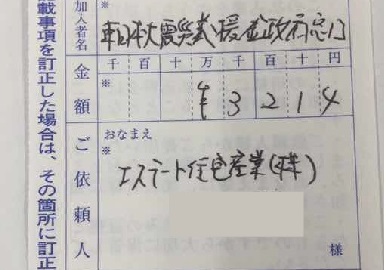 加入者名
※
東日本大震災義援金政府窓口
金額
千百十万千百十円
※
¥3214
ご依頼人
おなまえ
※
エステート住宅産業(株)
様
載事項を訂正した場合は、その箇所に訂正